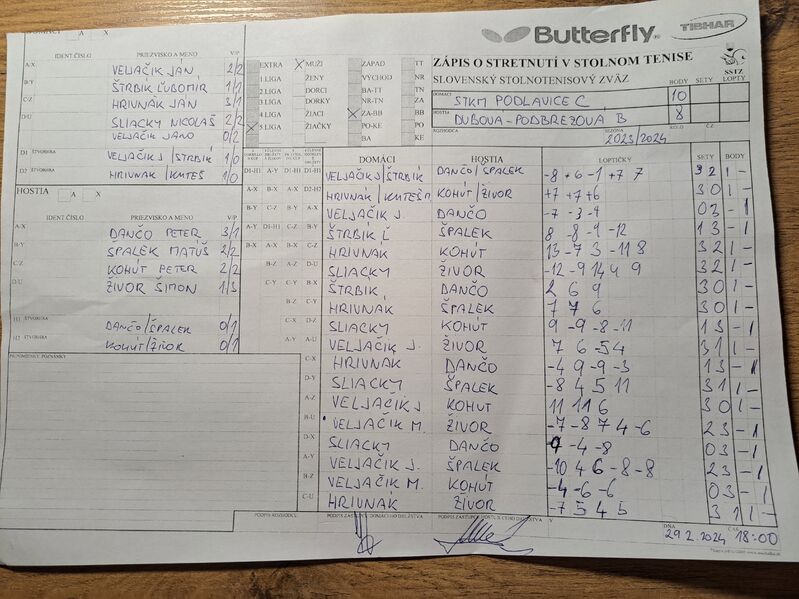 Butterfly
TIBHAR
DOMACI A X
IDENT ČÍSLO PRIEZVISKO A MENO V/P
A/X VELJAČIK JÁN 2/2
B/Y ŠTRBIK ĽUBOMÍR 1/1
C/Z HRIVNÁK JÁN 3/1
D/U SLIACKY NICOLAŠ 2/2
VELJAČIK JANO 0/2
D1 ŠTVORHRA VELJAČIK J/ŠTRBIK 1/0
D2 ŠTVORHRA HRIVNÁK/KMTEŠ 1/0
HOSTIA A X
IDENT ČÍSLO PRIEZVISKO A MENO V/P
A/X DANČO PETER 3/1
B/Y ŠPALEK MATÚŠ 2/2
C/Z KOHÚT PETER 2/2
D/U ŽIVOR ŠIMON 1/3
H1 ŠTVORHRA DANČO/ŠPALEK 0/1
H2 ŠTVORHRA KOHÚT/ŽIVOR 0/1
PRIPOMIENKY, POZNÁMKY
EXTRA X MUŽI ZÁPAD TT
1.LIGA ŽENY VÝCHOD NR
2.LIGA DORCI BA-TT TN
3.LIGA DORKY NR-TN ZA
4.LIGA ŽIACI X ZA-BB BB
X 5.LIGA ŽIAČKY PO-KE PO
BA KE
ZÁPIS O STRETNUTÍ V STOLNOM TENISE
SLOVENSKÝ STOLNOTENISOVÝ ZVÄZ
SSTZ
BODY SETY LOPTY
DOMACI STKM PODLAVICE C 10
HOSTIA DUBOVÁ-PODBREZOVÁ B 8
ROZHODCA SEZONA 2023/2024 KOLO Č.Z
DOMÁCI HOSTIA LOPTIČKY SETY BODY
VELJAČIK J/ŠTRBIK DANČO/ŠPALEK -8 +6 -1 +7 7 3 2 1 -
HRIVNÁK/KMTEŠ KOHÚT/ŽIVOR +7 +7 +6 3 0 1 -
VELJAČIK J. DANČO -7 -3 -9 0 3 - 1
ŠTRBIK Ľ ŠPALEK 8 -8 -9 -12 1 3 - 1
HRIVNÁK KOHÚT 13 -7 3 -11 8 3 2 1 -
SLIACKY ŽIVOR -12 -9 14 9 9 3 2 1 -
ŠTRBIK DANČO 2 6 9 3 0 1 -
HRIVNÁK ŠPALEK 7 7 6 3 0 1 -
SLIACKY KOHÚT 9 -9 -8 -11 1 3 - 1
VELJAČIK J. ŽIVOR 7 6 -5 4 3 1 1 -
HRIVNÁK DANČO -4 9 -9 -3 1 3 - 1
SLIACKY ŠPALEK -8 4 5 11 3 1 1 -
VELJAČIK J KOHÚT 11 11 6 3 0 1 -
VELJAČIK M. ŽIVOR -7 -8 7 4 -6 2 3 - 1
SLIACKY DANČO -4 -8 0 3 - 1
VELJAČIK J. ŠPALEK -10 4 6 -8 -8 2 3 - 1
VELJAČIK M. KOHÚT -4 -6 -6 0 3 - 1
HRIVNÁK ŽIVOR -7 5 4 5 3 1 1 -
PODPIS ROZHODCU
DŇA 29.2.2024 ČAS 18:00